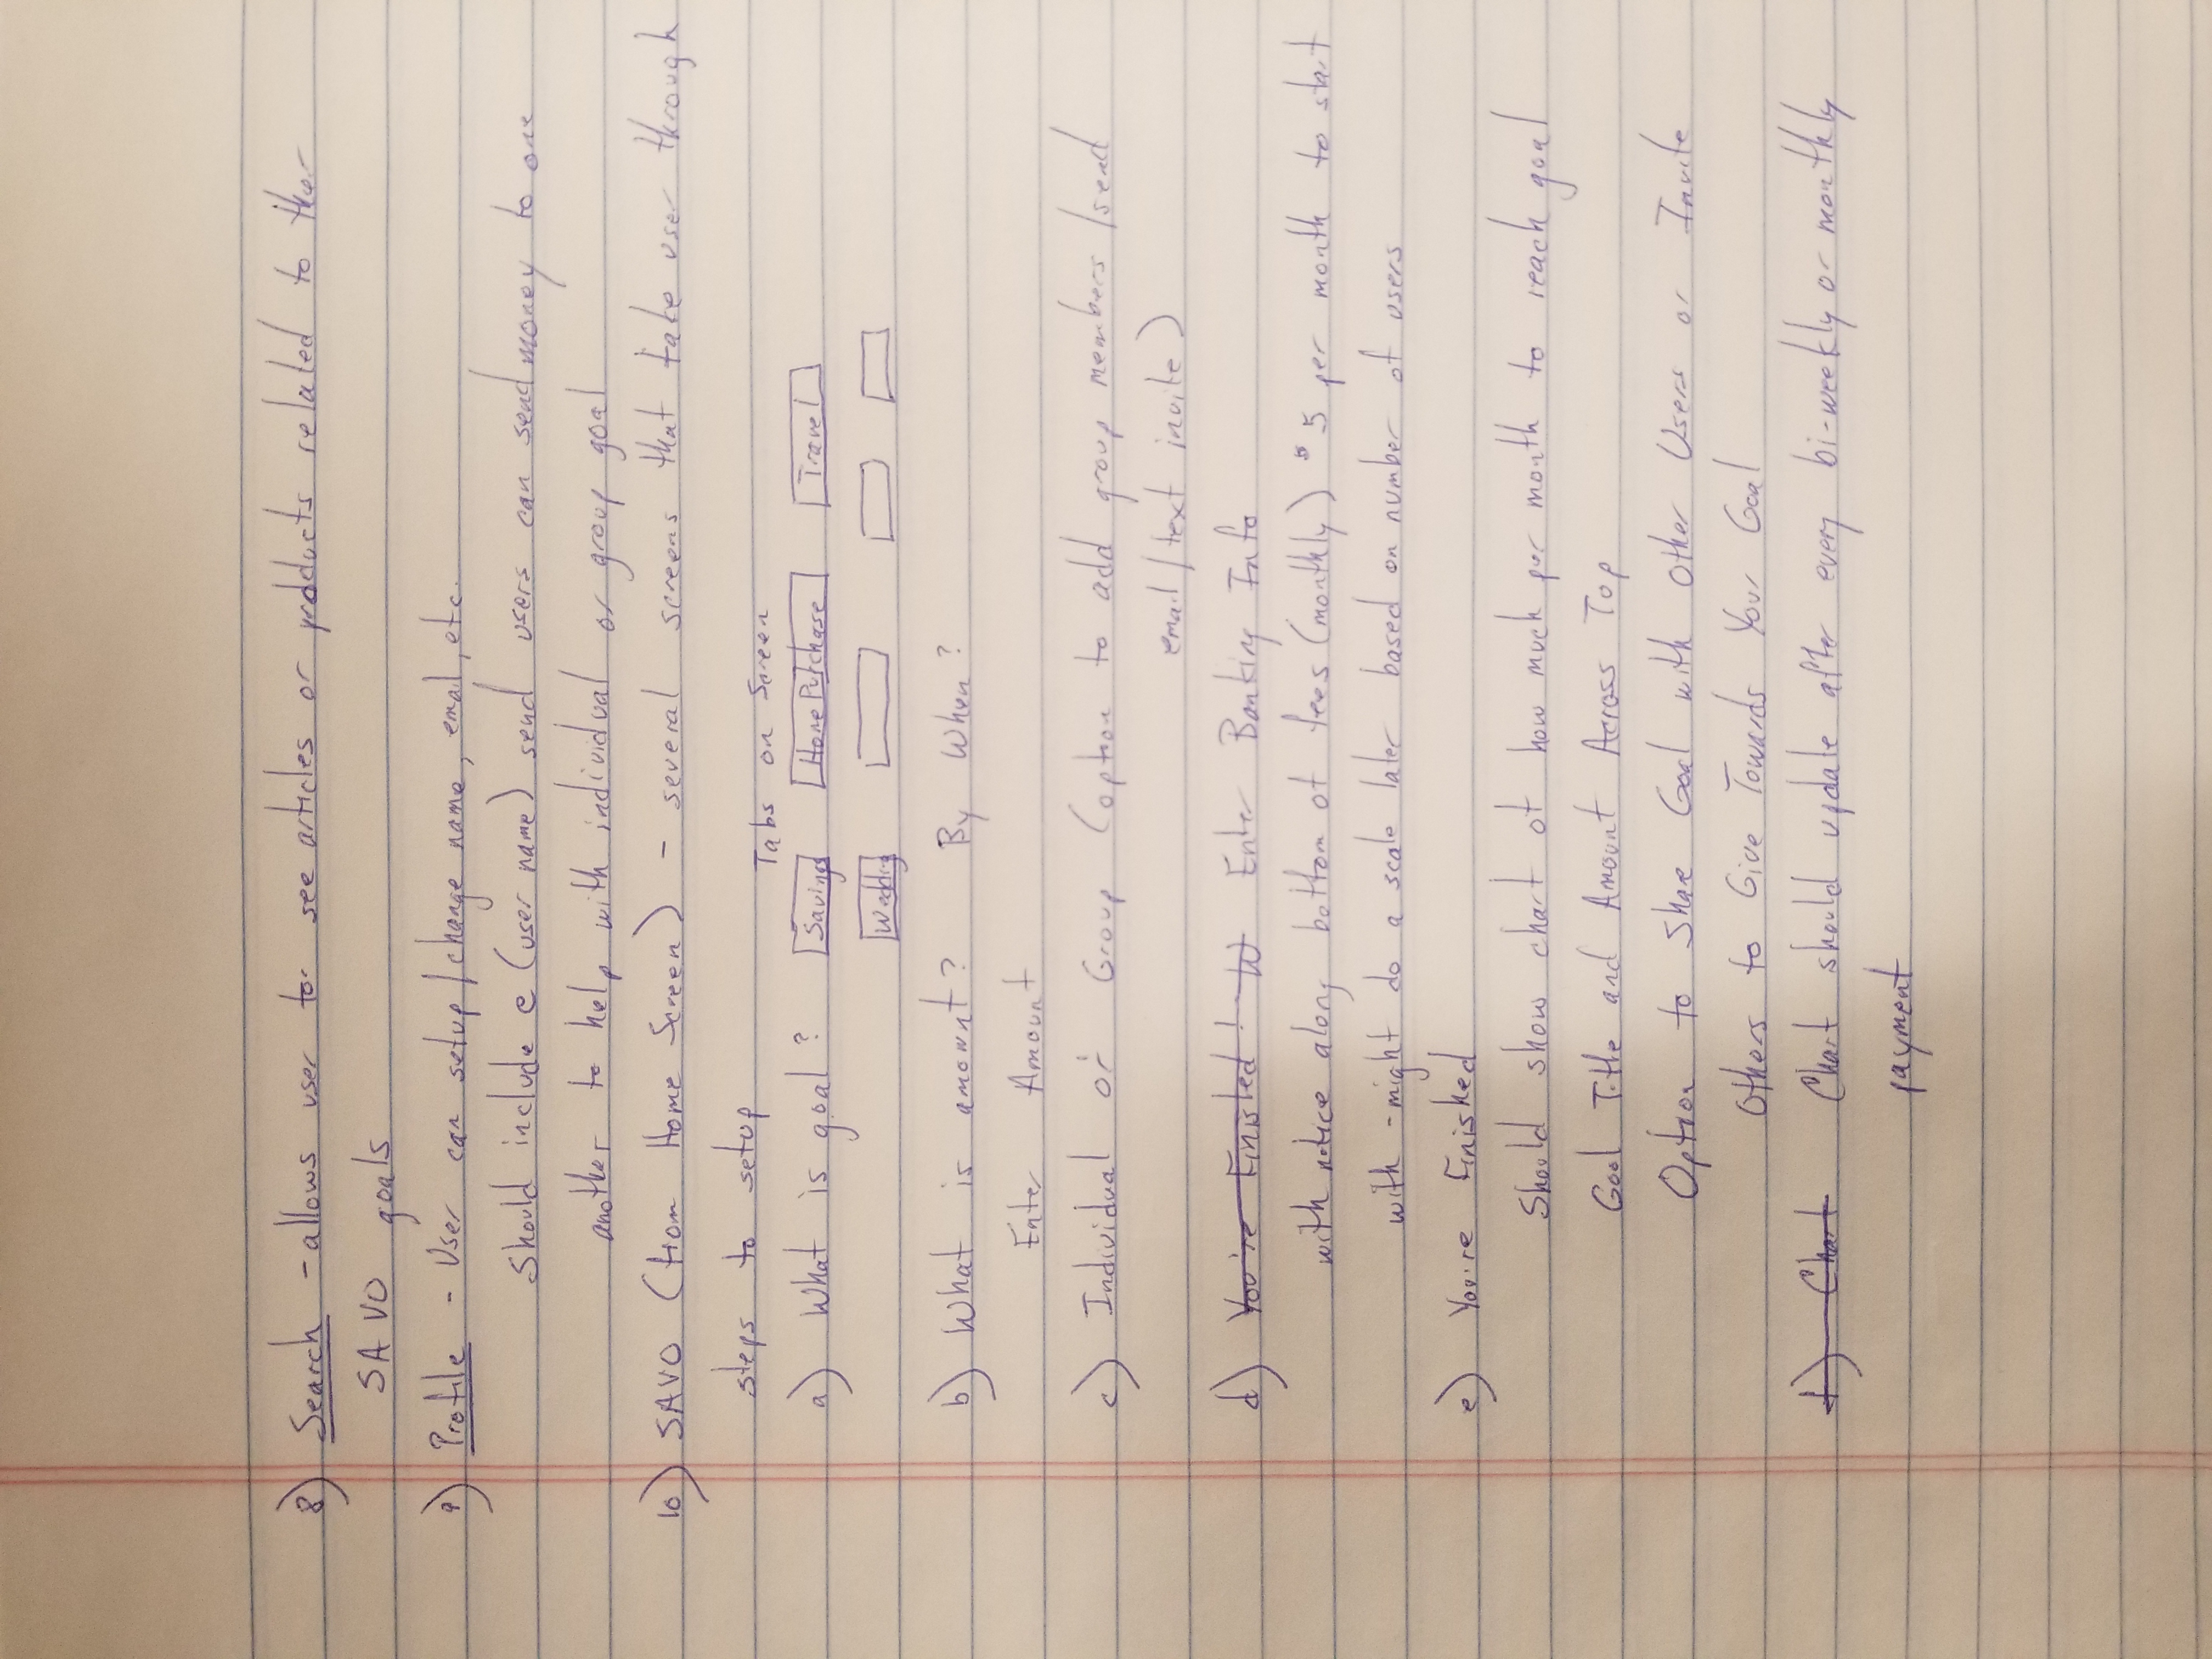 8) Search - allows user to see articles or prodducts related to ther
SAVO goals
9) Profile - User can setup/change name, email, etc.
Should include e (user name) send users can send money to one
another to help with individual or group goal
10) SAVO (from Home Screen) - several screens that take user through
steps to setup
Tabs on Screen
a) What is goal? Savings Home Purchase Travel
Wedding
b) What is amount? By When?
Enter Amount
c) Individual or Group (option to add group members /send
email/text invite)
d) You're Finisted! W Enter Banking Info
with notice along bottom of fees (monthly) $5 per month to start
with - might do a scale later based on number of users
e) You're Finished
Should show chart of how much per month to reach goal
Goal Title and Amount Across Top
Option to Share Goal with Other Users or Invite
Others to Give Towards Your Goal
f) Chart Chart should update after every bi-weekly or monthly
payment